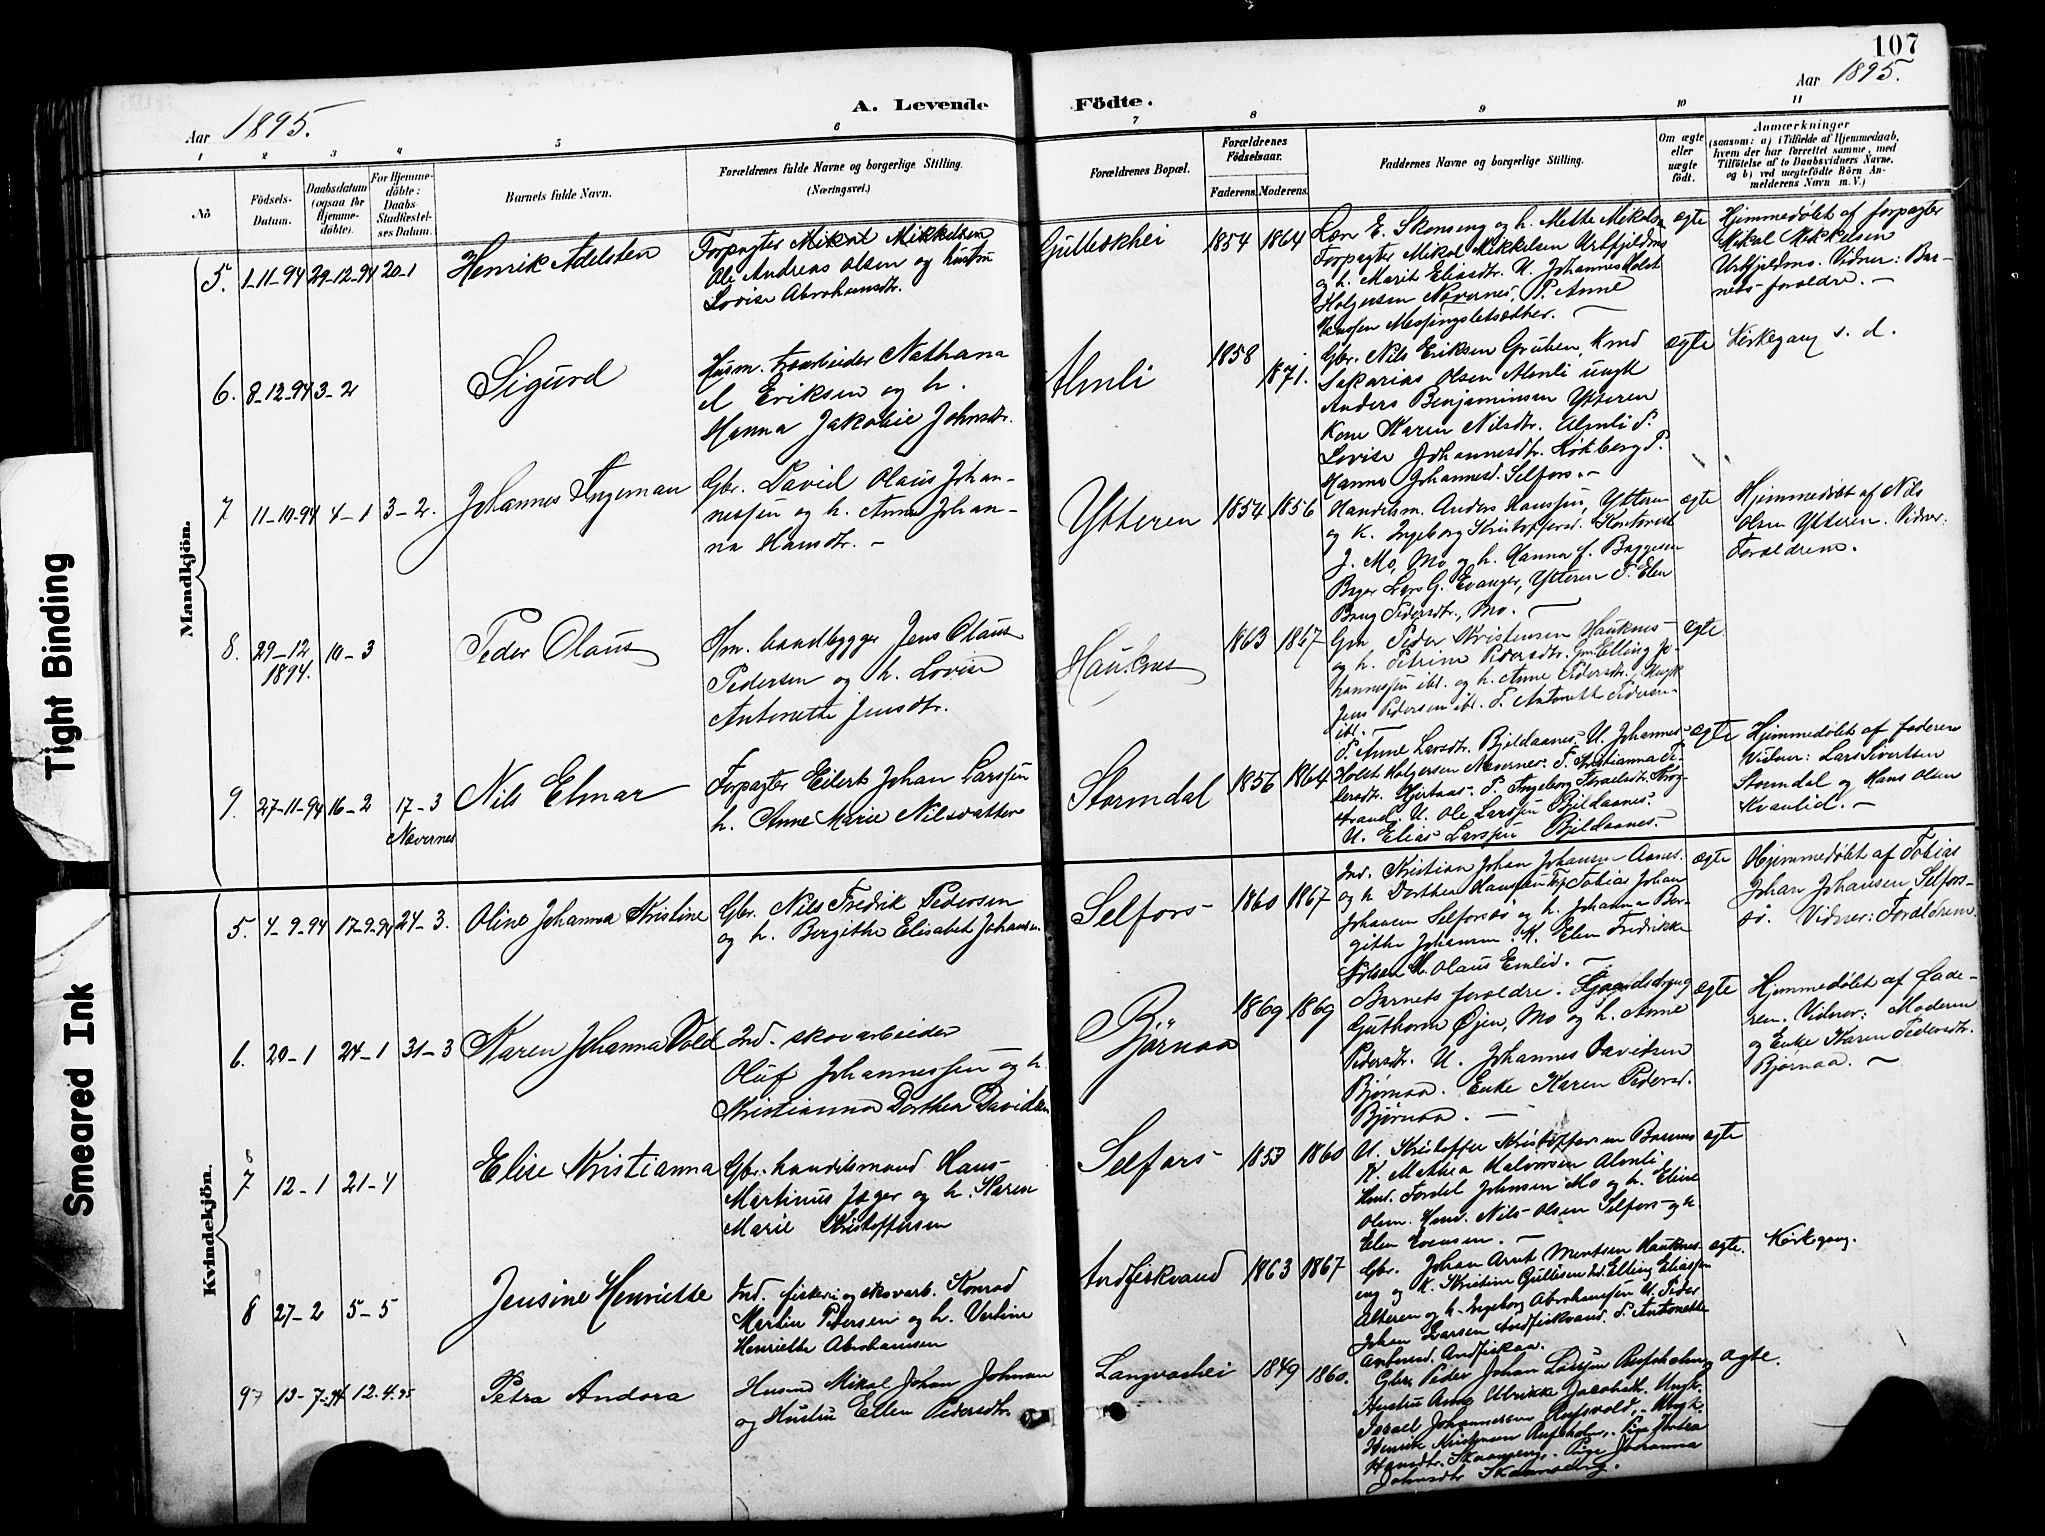 107
Aar 1895.
A. Levende
Födte.
Aar 1895.
1 2 3 4 5 6 7 8 9 10 11
Nö
Födsels-
Datum.
Daabsdatum
(ogsaa för
Hjemme-
döbte).
For Hjemme-
döbte:
Daabs-
Stadfæstel-
ses Datum.
Barnets fulde Navn.
Forældrenes fulde Navne og borgerlige Stilling.
(Næringsvei.)
Forældrenes Bopæl.
Forældrenes
Födselsaar.
Faderens. Moderens.
Faddernes Navne og borgerlige Stilling.
Om ægte
eller
uægte
födt.
Anmærkninger
(saasom: a) i Tilfælde af Hjemmedaab,
hvem der har forrettet samme, med
Tilföielse af to Daabsvidners Navne,
og b) ved uægtefödte Börn An-
melderens Navn m. V.)
Mandkjön.
5. 1-11-94 29-12-94 20-1
Henrik Adelsten
Forpagter Mikal Mikkelsen
Ole Andreas Olsen og hustru
Lovise Abrahamsdtr.
Gulleskhei
1854 1864
E. Skonseng og h. Mette Mikals
Forpagter Mikal Mikkelsen Urtfjeldmo
og h. Marit Eliasdtr. U. Johannes Holst
Holgersen Nævernes, P. Anne
Hanssen Messingsletsæther. —
ægte
Hjemmedøbt af forpagter
Mikal Mikkelsen
Urtfjeldmo. Vidner: Bar-
nets forældre. —
6. 8-12-94 3-2
Sigurd
Husm. Nathana
el Eriksen og h.
Hanna Jakobie Johnsdtr.
Almli
1858
1871.
Gbr. Nils Eriksen Gruben, Kmd
Sakarias Olsen Almli ungk
Anders Benjaminsen Ytteren
Kone Karen Nilsdtr. Almli P.
Lovise Johannesdtr. P.
Hanna Johannesd. Selfors. —
ægte
Kirkegang s. d.
7 11-10-94 4-1 3-2.
Johannes Ingeman
Gbr. David Olaus Johan-
nessen og h. Anna Johan-
na Hansdtr. —
Ytteren
1854 1856
Handelsm. Anders Hanssen, Ytteren
og K. Ingeborg Kristoffersd. Kontorist
J. Mo, Mo og h. Hanna f. Baggesen
Lars G. Evanger, Ytteren P. Elen
Berg Pedersdtr., Mo. —
ægte
Hjemmedøbt af Nils
Olsen Ytteren. Vidner:
Forældrene.
8. 29-12
1894. 10-3
Peder Olaus
Hm. baadbygger Jens Olaus
Pedersen og h. Lovise
Antonette Jensdtr.
Hauknes
1863 1867
Gm Peder Kristensen Hauknes-
og h. Petrine Pedersdtr. Gm Elling Jo-
hannessen ibl. og h. Anne Pedersdtr., Ungk
Jens Pedersen ibl. P. Antonett Pedersen
ibl. —
ægte
9. 27-11-94 16-2 17-3
Nævernes
Nils Elmar
Forpagter Eilert Johan Larssen
h. Anne Marie Nilsdatter
Stormdal
1856 1864
P. Anne Larsdtr. Bjeldaanes- U. Johannes-
Holst Holgersen Nævernes. P. Kristianna Pe-
dersdtr. Hjertaas. P. Ingeborg Israelsdtr. Krog-
strand. U. Ole Larssen Bjeldaanes.
U. Elias Larssen Bjeldaanes.
ægte
Hjemmedøbt af faderen
Vidner: Lars Sivertsen
Stormdal og Hans Olsen
Kvanlid. —
Kvindekjön.
5. 4-9-94 17-9-94 24-3.
Oline Johanna Kristine
Gbr. Nils Fredrik Pedersen
og h. Bergithe Elisabet Johansen.
Selfors-
1860 1867
Ind. Kristian Johan Johansen Aanes.
og h Dorthea Hanssen Tobias Johan
Johansen Selforsø og h. Johanna Ber-
githe Johansen. K. Elen Fredrikke
Nilsen U. Olaus Enlid. —
ægte
Hjemmedøbt af Tobias
Johan Johansen Selfors-
ø. Vidner: Forældrene.
6. 20-1 24-1 31-3
Karen Johanna Vold
Ind. skovarbeider
Oluf Johannessen og h.
Kristianna Dorthea Davidsen
Bjørnaa
1869 1869
Barnets forældre.
Guthorm Øjen, Mo og h. Anne
Pedersdtr. U. Johannes Davidsen
Bjørnaa. Enke Karen Pedersd.
Bjørnaa. —
ægte
Hjemmedøbt af fade-
ren. Vidner: Moderen
og Enke Karen Pedersdtr.
Bjørnaa. —
7 12-1 21-4
Elise Kristianna
Gbr. handelsmand Hans
Martinus Jæger og h. Karen
Marie Kristoffersen
Selfors-
1853 1860
U. Kristoffer Kristoffersen
K. Mathea Halvorsen Almli
Hmd. Fordel Johnsen Mo og h. Eline
Olsen. Hmd. Nils Olsen Selfors og h.
Elen Evensen. —
ægte
8 27-2 5-5
Jensine Henriette
Ind. fiskeri og skovarb. Konrad
Martin Pedersen og h. Verline
Henriette Abrahamsen
Andfiskvand
1863 1867
Gbr. Johan Arnt Mentsen Hauknes-
og K. Kristine Gullesen Ind. Elling Eliassen
Alteren og h. Ingeborg Abrahamsen U. Peder
Johan Larsen Andfiskvand. P. Antonette
Andersd. Andfiskaa.
ægte.
Kirkegang.
9 13-7-94 12.4.95
Petra Andora
Husmd Mikal Johan Johnsen
og Hustru Ellen Pedersdtr.
Langvashei
1849 1860.
Gbr. Peder Johan Larsen Rufsholm
Hustru Anne Ulrikke Jacobsdtr. Ungk.
Israel Johannessen Rufsvold, Ungk.
Henrik Kristensen Rufsholm, Pige
Hansdtr. Skonseng. Pige Johanna
Johnsdtr Skonseng.
ægte.
Tight Binding
Smeared Ink